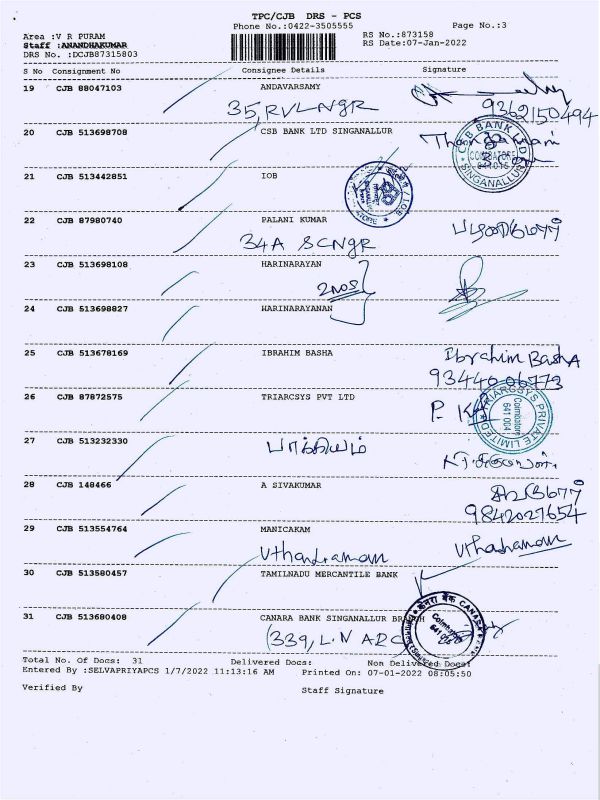 TPC/CJB DRS - PCS
Phone No.:0422-3505555
Page No.:3
Area :V R PURAM
RS No.:873158
Staff :ANANDHAKUMAR
RS Date:07-Jan-2022
DRS No. :DCJB87315803
S No Consignment No Consignee Details Signature
19 CJB 88047103 ANDAVARSAMY
35, RVLNGR 9362150494
20 CJB 513698708 CSB BANK LTD SINGANALLUR
CSB BANK LTD COIMBATORE SINGANALLUR
21 CJB 513442851 IOB
22 CJB 87980740 PALANI KUMAR
34A SCNGR
23 CJB 513698108 HARINARAYAN
2nos
24 CJB 513698827 HARINARAYANAN
25 CJB 513678169 IBRAHIM BASHA Ibrahim BashA
93440 06773
26 CJB 87872575 TRIARCSYS PVT LTD
TRIARCSYS PRIVATE LIMITED Coimbatore 641 004
27 CJB 513232330 பாக்கியம்
28 CJB 148466 A SIVAKUMAR
9842027654
29 CJB 513554764 MANICAKAM
30 CJB 513580457 TAMILNADU MERCANTILE BANK
31 CJB 513680408 CANARA BANK SINGANALLUR BRANCH
(339, L.N ARC
Total No. Of Docs: 31 Delivered Docs: Non Delivered Docs:
Entered By :SELVAPRIYAPCS 1/7/2022 11:13:16 AM Printed On: 07-01-2022 08:05:50
Verified By Staff Signature